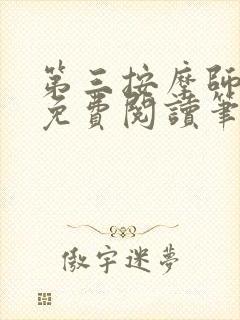 第三按摩師
免費閱讀筆
傲宇迷夢